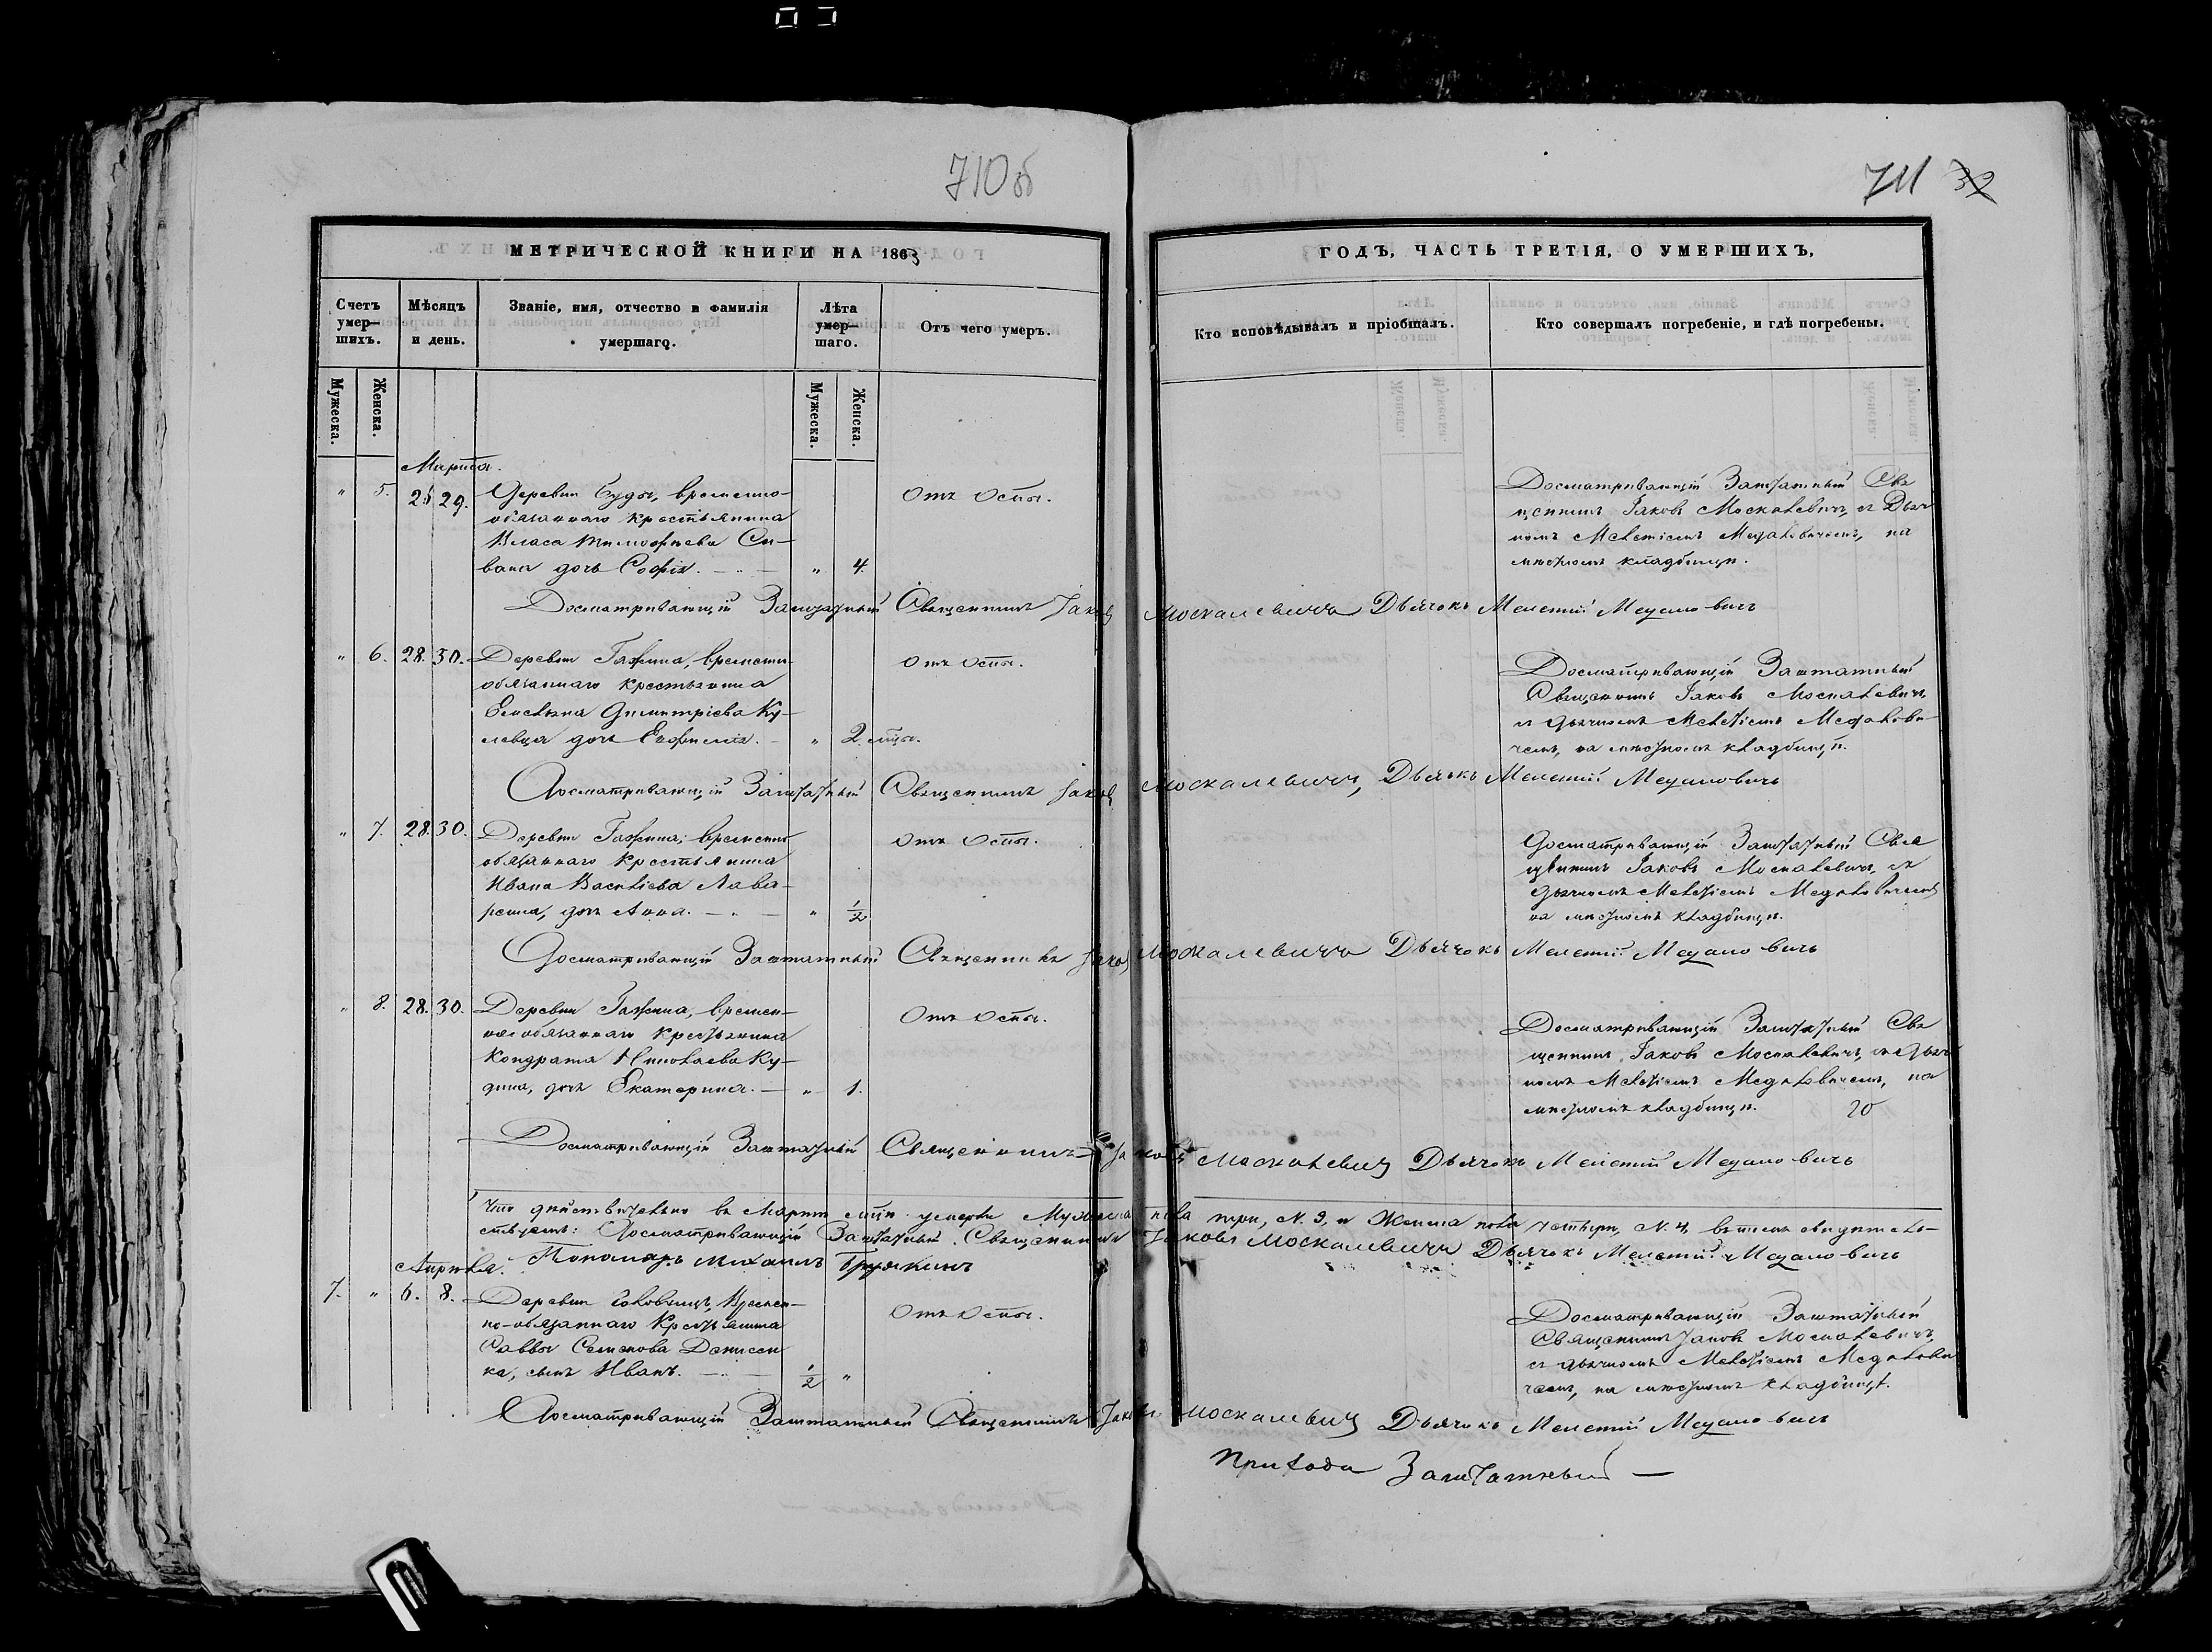 710 об
711 32
МЕТРИЧЕСКОЙ КНИГИ НА 1863
ГОДЪ, ЧАСТЬ ТРЕТІЯ, О УМЕРШИХЪ,
Счетъ умер-шихъ.
Мѣсяцъ и день.
Званіе, имя, отчество и фамилія умершаго.
Лѣта умер-шаго.
Отъ чего умеръ.
Кто исповѣдывалъ и пріобщалъ.
Кто совершалъ погребеніе, и гдѣ погребены.
Мужеска.
Женска.
Мужеска.
Женска.
Марта.
" 5. 26 29. Деревни Буды, временно-
обязаннаго крестьянина
Власа Тимофеева Си-
вака дочь Софія. " 4.
Отъ Оспы.
Досматривающій Заштатный Свя
щенникъ Іаковъ Москалевичъ, съ Дьяч
комъ Мелетіемъ Медаловичемъ, на
мѣстномъ кладбищѣ.
Досматривающій Заштатный Священникъ Іаковъ Москалевичъ Дьячокъ Мелетий Медаловичъ
" 6. 28. 30. Деревни Гажина, временно
обязаннаго крестьянина
Емельяна Димитріева Ку-
левца дочь Евфимія. " 2. мцы.
отъ оспы.
Досматривающій Заштатный
Священникъ Іаковъ Москалевичъ,
съ дьячкомъ Мелетіемъ Медалови-
чемъ, на мѣстномъ кладбищѣ.
Досматривающій Заштатный Священникъ Іаковъ Москалевичъ, Дьячокъ Мелетий Медаловичъ
" 7. 28. 30. Деревни Гажина, временно
обязаннаго крестьянина
Ивана Васильева
дочь Анна. " 1/2
отъ Оспы.
Досматривающій Заштатный Свя
щенникъ Іаковъ Москалевичъ, съ
дьячкомъ Мелетіемъ Медаловичемъ
на мѣстномъ кладбищѣ.
Досматривающій Заштатный Священникъ Іаковъ Москалевичъ Дьячокъ Мелетий Медаловичъ
" 8. 28. 30. Деревни Гажина, времен-
нообязаннаго крестьянина
Кондрата Николаева Ку-
дина, дочь Екатерина. " 1.
Отъ Оспы.
Досматривающій Заштатный Свя
щенникъ Іаковъ Москалевичъ, съ дьяч
комъ Мелетіемъ Медаловичемъ, на
мѣстномъ кладбищѣ. 20
Досматривающій Заштатный Священникъ Іаковъ Москалевичъ Дьячокъ Мелетий Медаловичъ
Что дѣйствительно въ Мартѣ мцѣ умерли Мужеска пола три, N. 3, и Женска пола четыри, N. 4, въ томъ свидѣтель-
ствуемъ: Досматривающій Заштатный Священникъ Іаковъ Москалевичъ Дьячокъ Мелетий Медаловичъ
Пономарь Михаилъ
Апрѣля.
7. " 6. 8. Деревни времен-
но-обязаннаго Крестьянина
Саввы Семенова Денисен
ка, сынъ Иванъ. 1/2 "
Отъ Оспы.
Досматривающій Заштатный
Священникъ Іаковъ Москалевичъ,
съ дьячкомъ Мелетіемъ Медалови
чемъ, на мѣстномъ кладбищѣ.
Досматривающій Заштатный Священникъ Іаковъ Москалевичъ Дьячокъ Мелетий Медаловичъ
Прихода Заштатный —